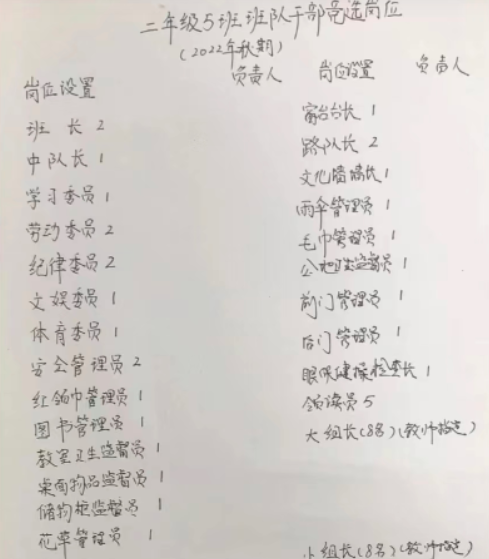 二年级5班班队干部竞选岗位
(2022年秋期)
岗位设置 负责人 岗位设置 负责人
班 长 2
中队长 1
学习委员 1
劳动委员 2
纪律委员 2
文娱委员 1
体育委员 1
安全管理员 2
红领巾管理员 1
图书管理员 1
教室卫生监督员 1
桌面物品监督员 1
储物柜监督员 1
花草管理员 1
窗台台长 1
路队长 2
文化墙墙长 1
雨伞管理员 1
毛巾管理员 1
公地卫生监督员 1
前门管理员 1
后门管理员 1
眼保健操检查长 1
领读员 5
大组长(8名)(教师指定)
小组长(8名)(教师指定)